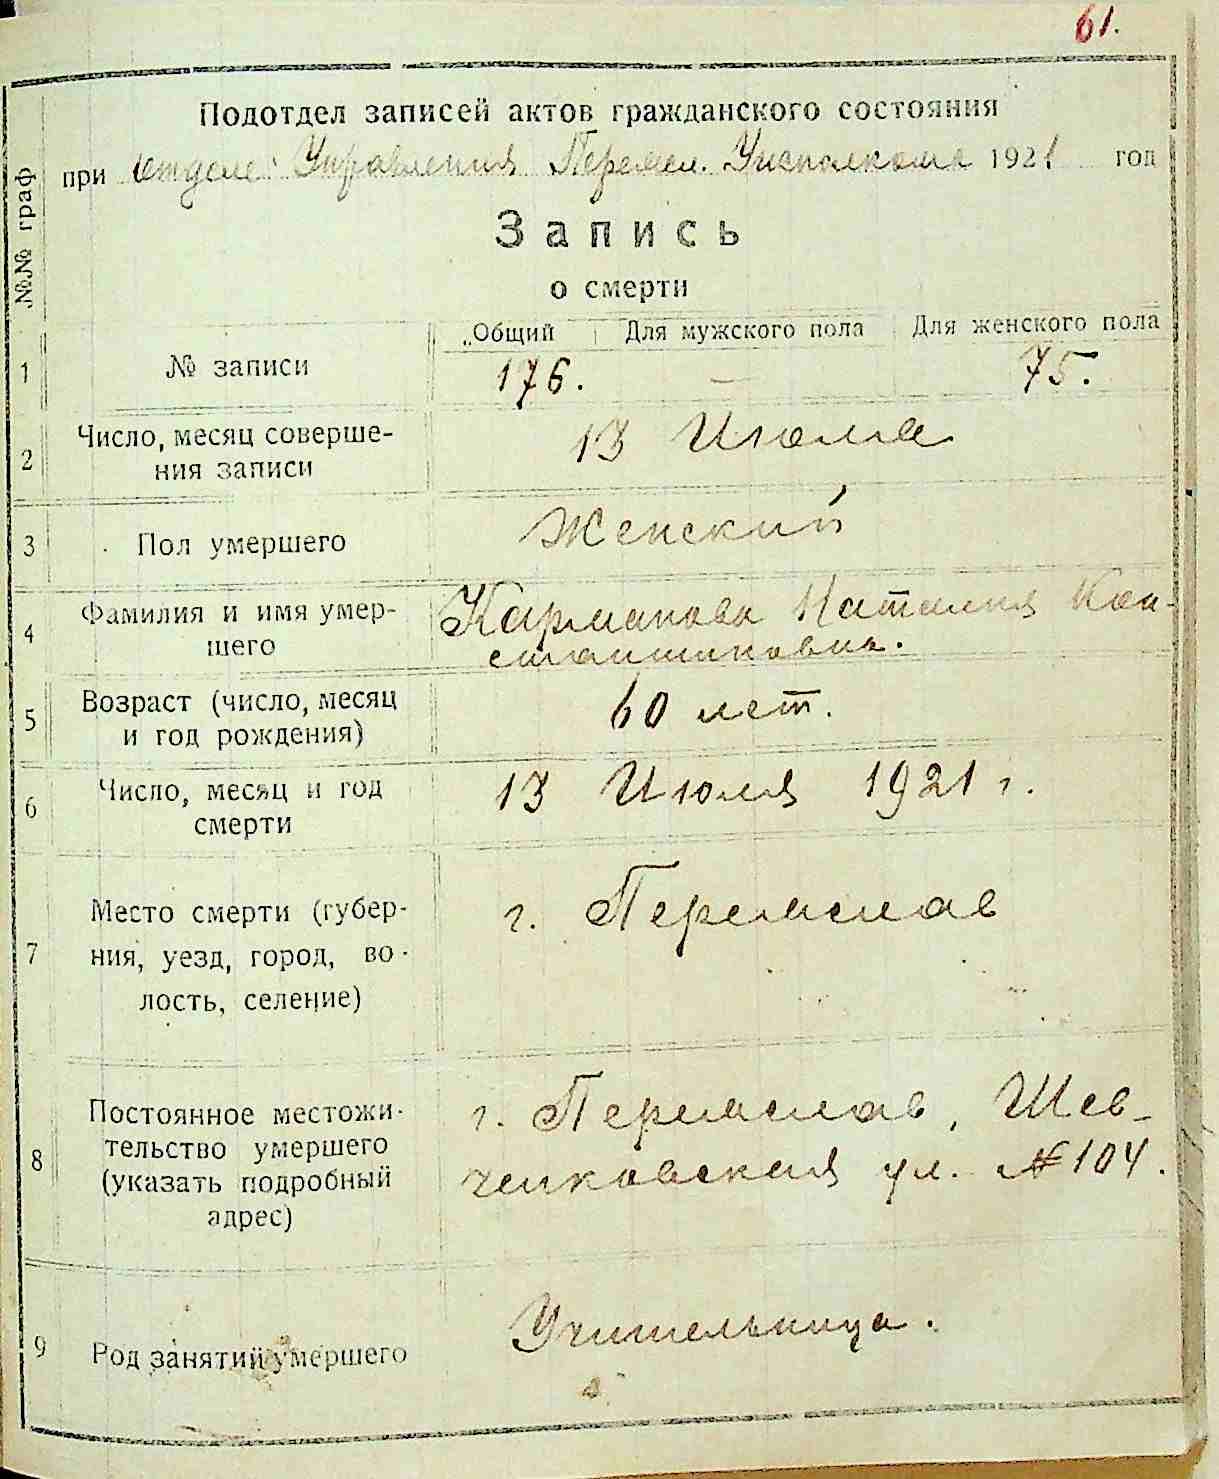 61.
Подотдел записей актов гражданского состояния
при отделе Управления Переясл. Уисполкома 1921 год
Запись
о смерти
№№ граф
Общий Для мужского пола Для женского пола
1 № записи 176. — 75.
2 Число, месяц соверше-
ния записи
13 Июля
3 Пол умершего Женский
4 Фамилия и имя умер-
шего
Карманова Наталия Кон-
стантиновна.
5 Возраст (число, месяц
и год рождения)
60 лет.
6 Число, месяц и год
смерти
13 Июля 1921 г.
7 Место смерти (губер-
ния, уезд, город, во-
лость, селение)
г. Переяслав
8 Постоянное местожи-
тельство умершего
(указать подробный
адрес)
г. Переяслав, Шев-
ченковская ул. № 104.
9 Род занятий умершего Учительница.